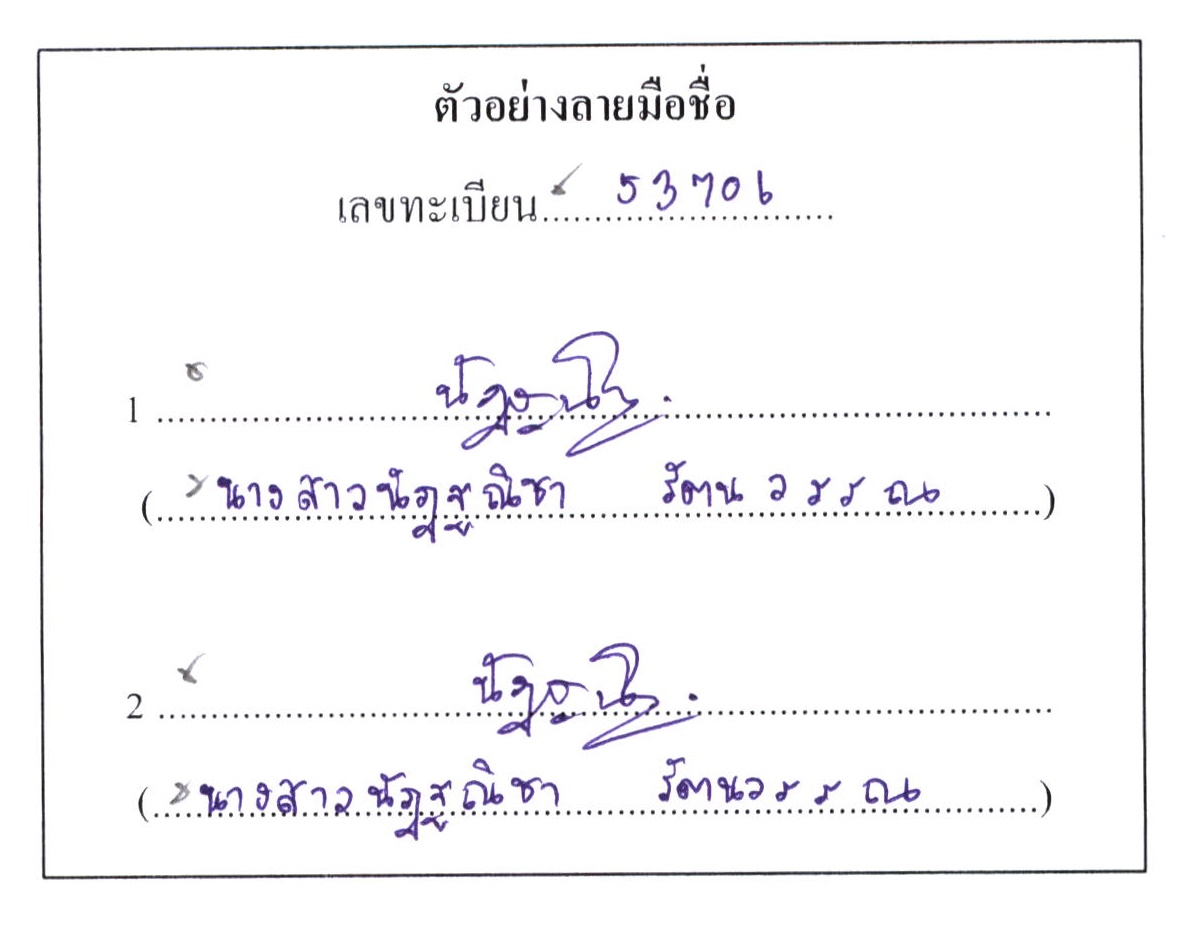 ตัวอย่างลายมือชื่อ
เลขทะเบียน 53706
1
(นางสาวนัฏฐณิชา รัตนวรรณ)
2
(นางสาวนัฏฐณิชา รัตนวรรณ)